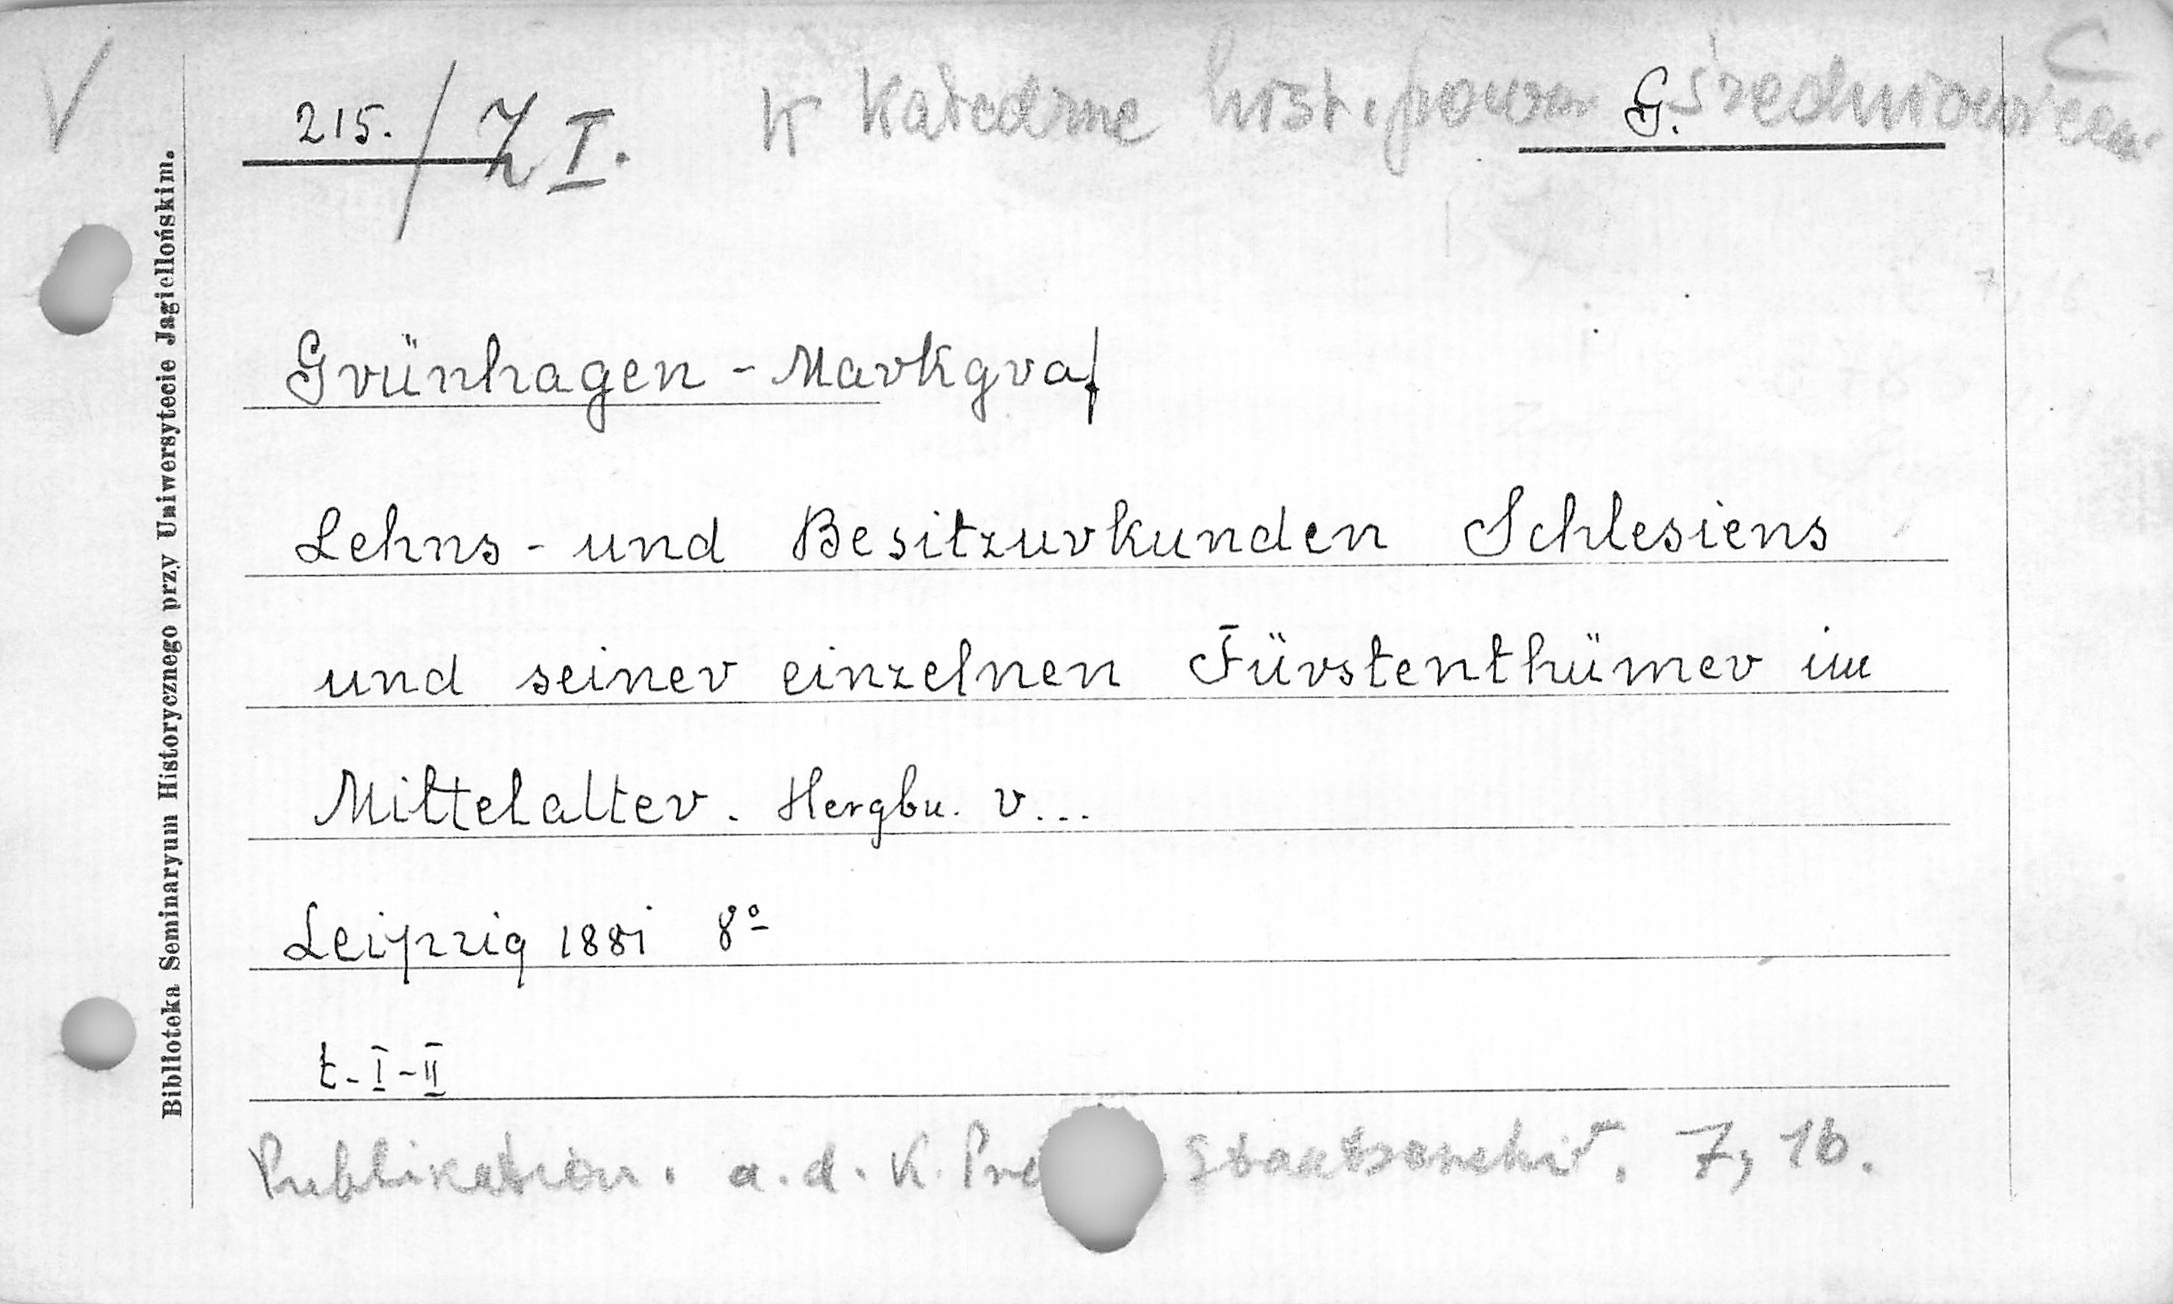 V
C
215./ Z I.
K Katedrze hist. powsz. średniowiecza
G.
Biblioteka Seminaryum Historycznego przy Uniwersytecie Jagiellońskim.
Grünhagen - Markgraf
Lehns - und Besitzurkunden Schlesiens
und seiner einzelnen Fürstenthümer im
Mittelalter. Hergbn. v...
Leipzig 1881 8º
t. I-II
Publikation. a. d. K. Pre Staatsarchiv. 7, 16.